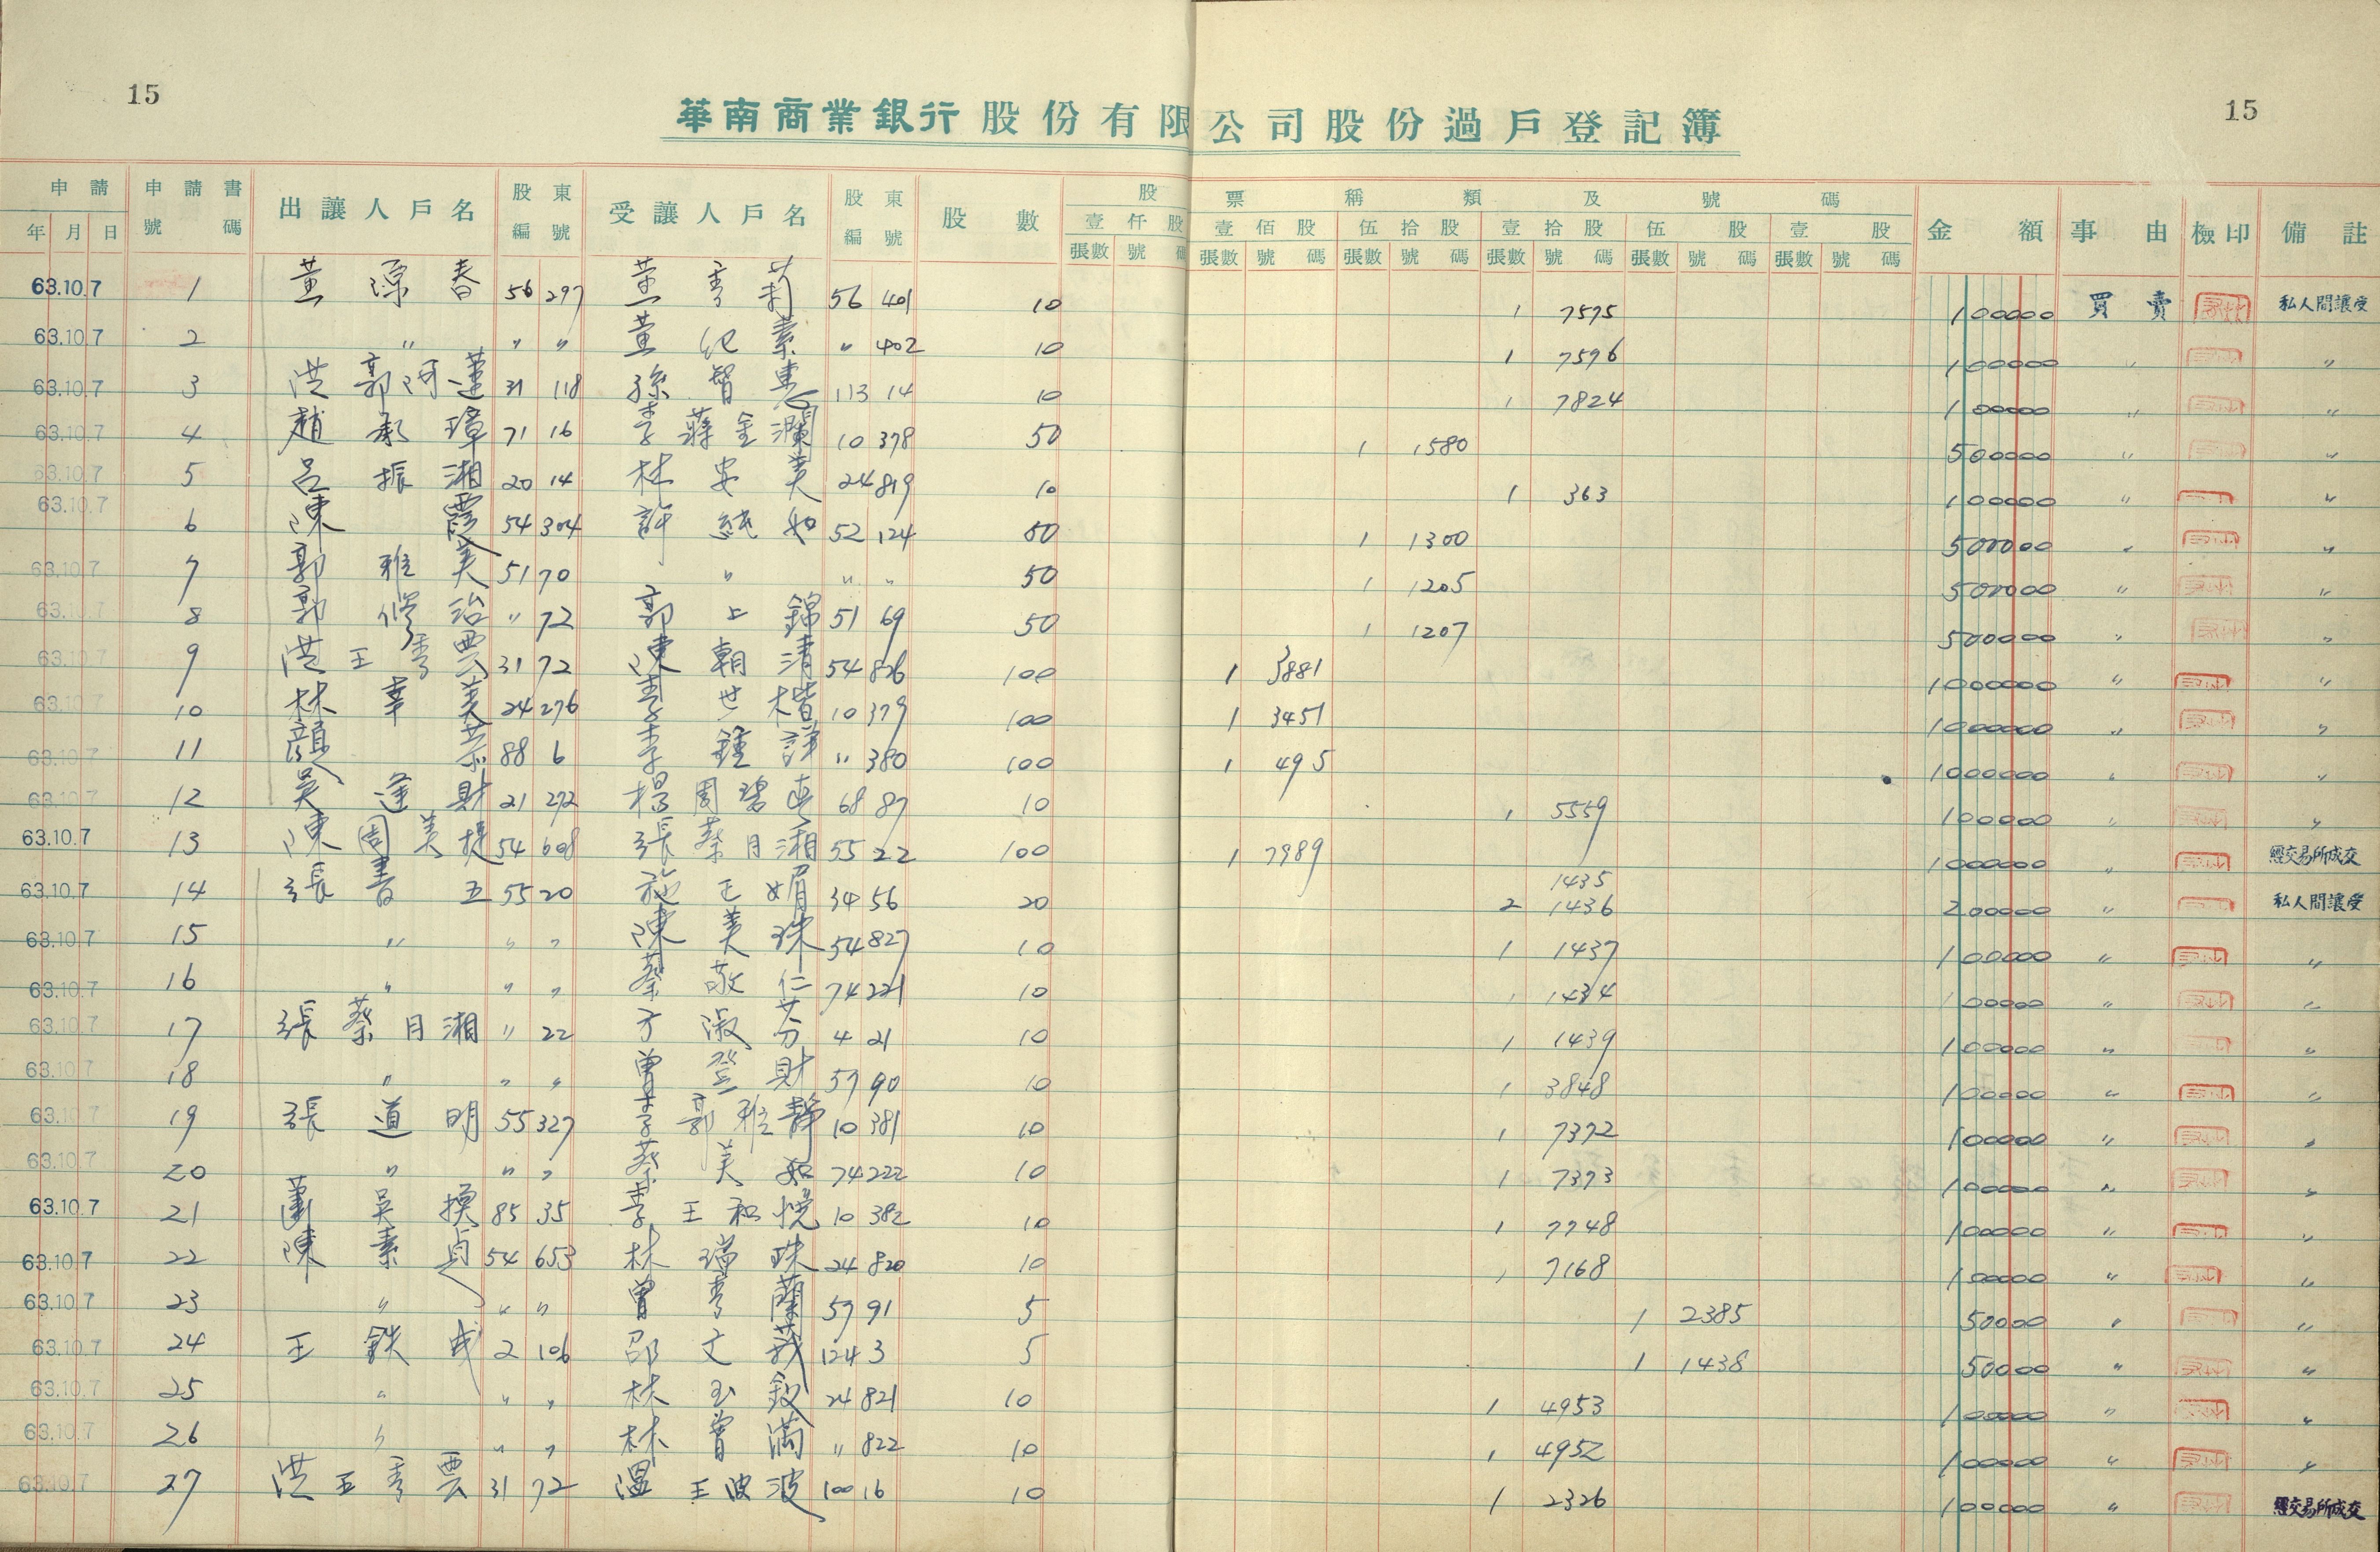 15
15
華南商業銀行股份有限公司股份過戶登記簿
申請 申請書 出讓人戶名 股東 受讓人戶名 股東 股數 股票稱類及號碼 金額 事由 檢印 備註
年 月 日 號碼 編號 編號 壹仟股 壹佰股 伍拾股 壹拾股 伍股 壹股
張數 號碼 張數 號碼 張數 號碼 張數 號碼 張數 號碼 張數 號碼
63.10.7 1 黃源春 56 297 黃秀莉 56 401 10 1 7595 100000 買賣 私人間讓受
63.10.7 2 〃 〃 〃 黃 素 〃 402 10 1 7596 100000 〃 〃
63.10.7 3 洪郭阿蓮 31 118 孫智惠 113 14 10 1 7824 100000 〃 〃
63.10.7 4 趙承璋 71 16 李蔣金瀾 10 378 50 1 1580 500000 〃 〃
63.10.7 5 呂振湘 20 14 林安美 24 819 10 1 363 100000 〃 〃
63.10.7 6 陳霞 54 304 許純如 52 124 50 1 1300 500000 〃 〃
63.10.7 7 郭雅美 51 70 〃 〃 〃 50 1 1205 500000 〃 〃
63.10.7 8 郭修治 〃 72 郭上錦 51 69 50 1 1207 500000 〃 〃
63.10.7 9 洪王秀雲 31 72 陳朝清 54 826 100 1 3881 1000000 〃 〃
63.10.7 10 林幸美 24 276 李世楷 10 379 100 1 3451 1000000 〃 〃
63.10.7 11 顏 88 6 李鍾詳 〃 380 100 1 495 1000000 〃 〃
63.10.7 12 吳逢財 21 272 楊周碧 68 87 10 1 5559 100000 〃 〃
63.10.7 13 陳周美提 54 608 張蔡月湘 55 22 100 1 7989 1000000 〃 經交易所成交
63.10.7 14 張書五 55 20 施正媚 34 56 20 2 1435 1436 200000 〃 私人間讓受
63.10.7 15 〃 〃 〃 陳美珠 54 827 10 1 1437 100000 〃 〃
63.10.7 16 〃 〃 〃 蔡敬仁 74 221 10 1 1434 100000 〃 〃
63.10.7 17 張蔡月湘 〃 22 方淑芬 4 21 10 1 1439 100000 〃 〃
63.10.7 18 〃 〃 〃 曾登財 59 90 10 1 3848 100000 〃 〃
63.10.7 19 張道明 55 327 李郭雅靜 10 381 10 1 7372 100000 〃 〃
63.10.7 20 〃 〃 〃 蔡美如 74 222 10 1 7373 100000 〃 〃
63.10.7 21 蕭吳換 85 35 李王和悅 10 382 10 1 7748 100000 〃 〃
63.10.7 22 陳素貞 54 653 林瑞珠 24 820 10 1 7168 100000 〃 〃
63.10.7 23 〃 〃 〃 曾秀蘭 59 91 5 1 2385 50000 〃 〃
63.10.7 24 王鉄 2 106 邵文莪 124 3 5 1 1438 50000 〃 〃
63.10.7 25 〃 〃 〃 林玉釵 24 821 10 1 4953 100000 〃 〃
63.10.7 26 〃 〃 〃 林曾滿 〃 822 10 1 4952 100000 〃 〃
63.10.7 27 洪王秀雲 31 72 溫王波波 100 16 10 1 2326 100000 〃 經交易所成交